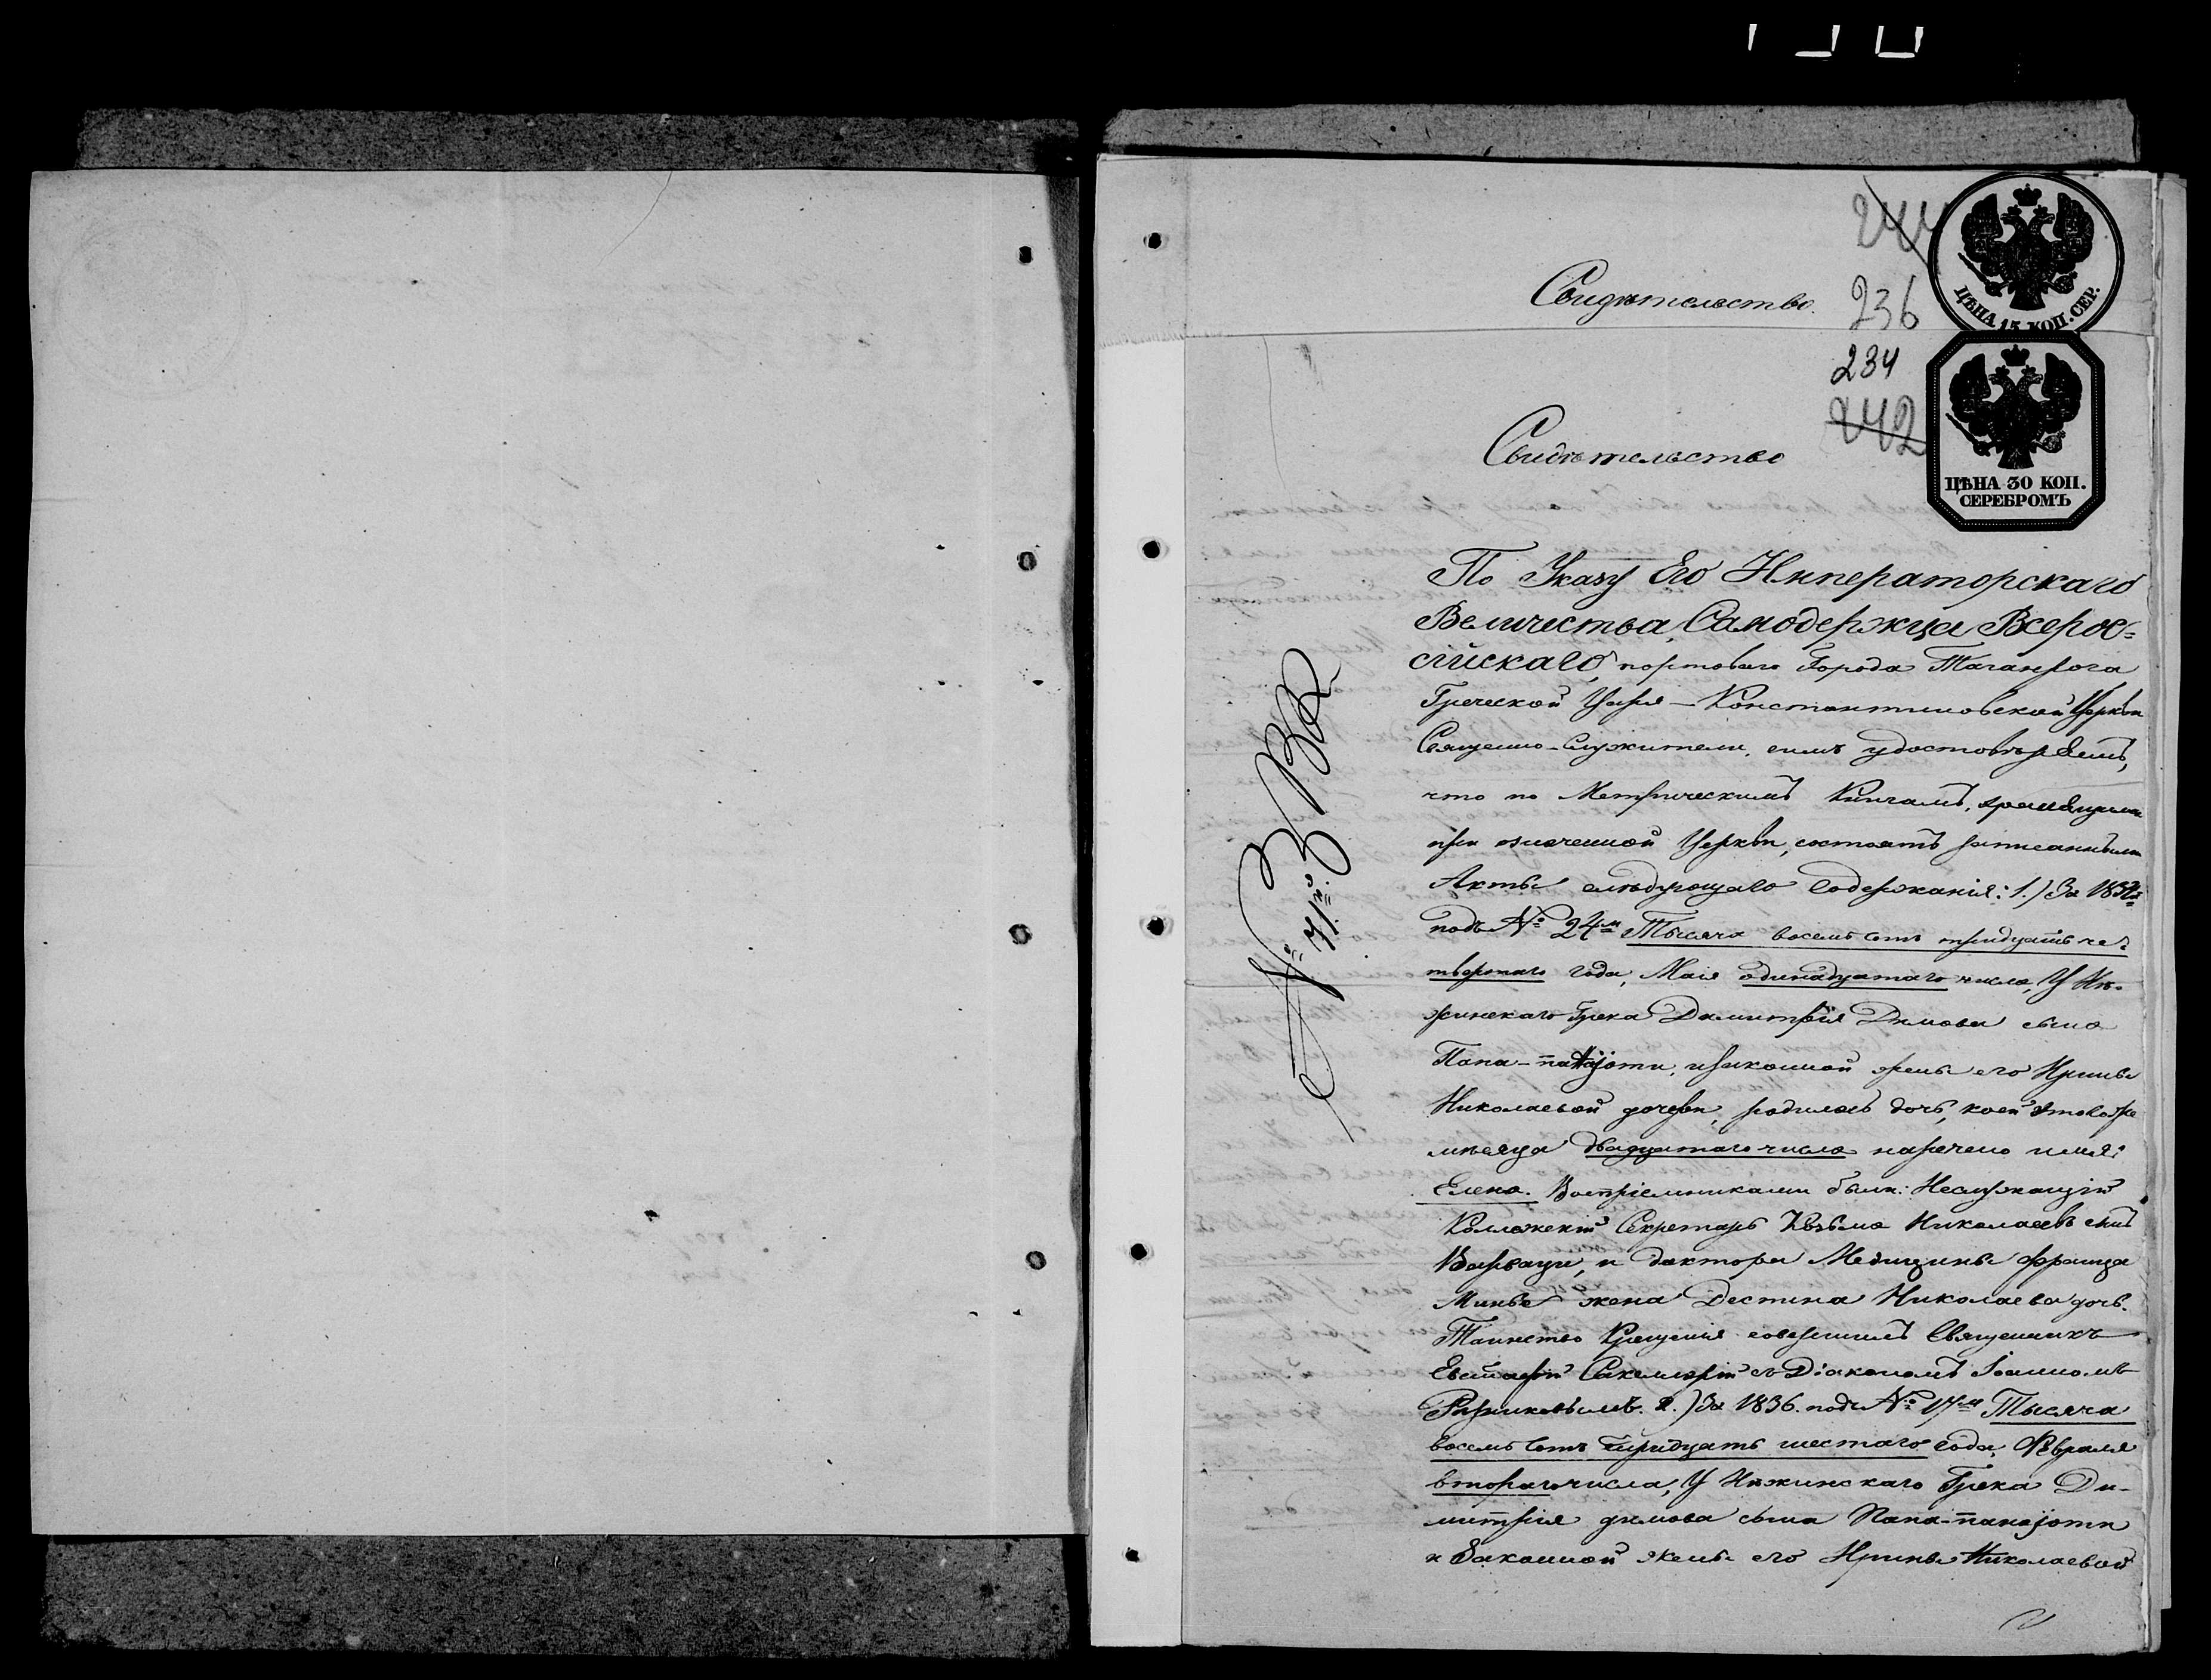 244
Свидѣтельство.
236
ЦѢНА 15 КОП. СЕР.
234
242
Свидѣтельство
ЦѢНА 30 КОП.
СЕРЕБРОМЪ
По Указу Его Императорскаго
Величества, Самодержца Всерос=
сійскаго, портоваго Города Таганрога
Греческой Царя-Константиновской Церкви
Священно-Служители, симъ удостовѣряемъ,
что по Метрическимъ Книгамъ, хранящимся
при означенной Церкви, состоятъ записанными
Акты слѣдующаго содержанія: 1.) За 1834й
подъ № 24м Тысяча восемь сотъ тридцать че-
твертаго года, Маія одинадцатаго числа, У Нѣ-
жинскаго Грека Димитрія Димова сына
Папа-панаіоти, и законной жены его Ирины
Николаевой дочери, родилась дочь, коей этого же
мѣсяца двадцатаго числа наречено имя:
Елена. Воспріемниками были: Неслужащій
Коллежскій Секретарь Козьма Николаевъ сынъ
Варваци, и доктора Медицины Франца
Минье жена Деспина Николаева дочь.
Таинство Крещенія совершилъ Священникъ
Евстафій Сакелларій съ Діакономъ Іоанномъ
2.) За 1836. подъ № 17м Тысяча
восемь сотъ тридцать шестаго года, Февраля
втораго числа, У Нѣжинскаго Грека Ди-
митрія димова сына Папа-панаіоти
и Законной жены его Ирины Николаевой